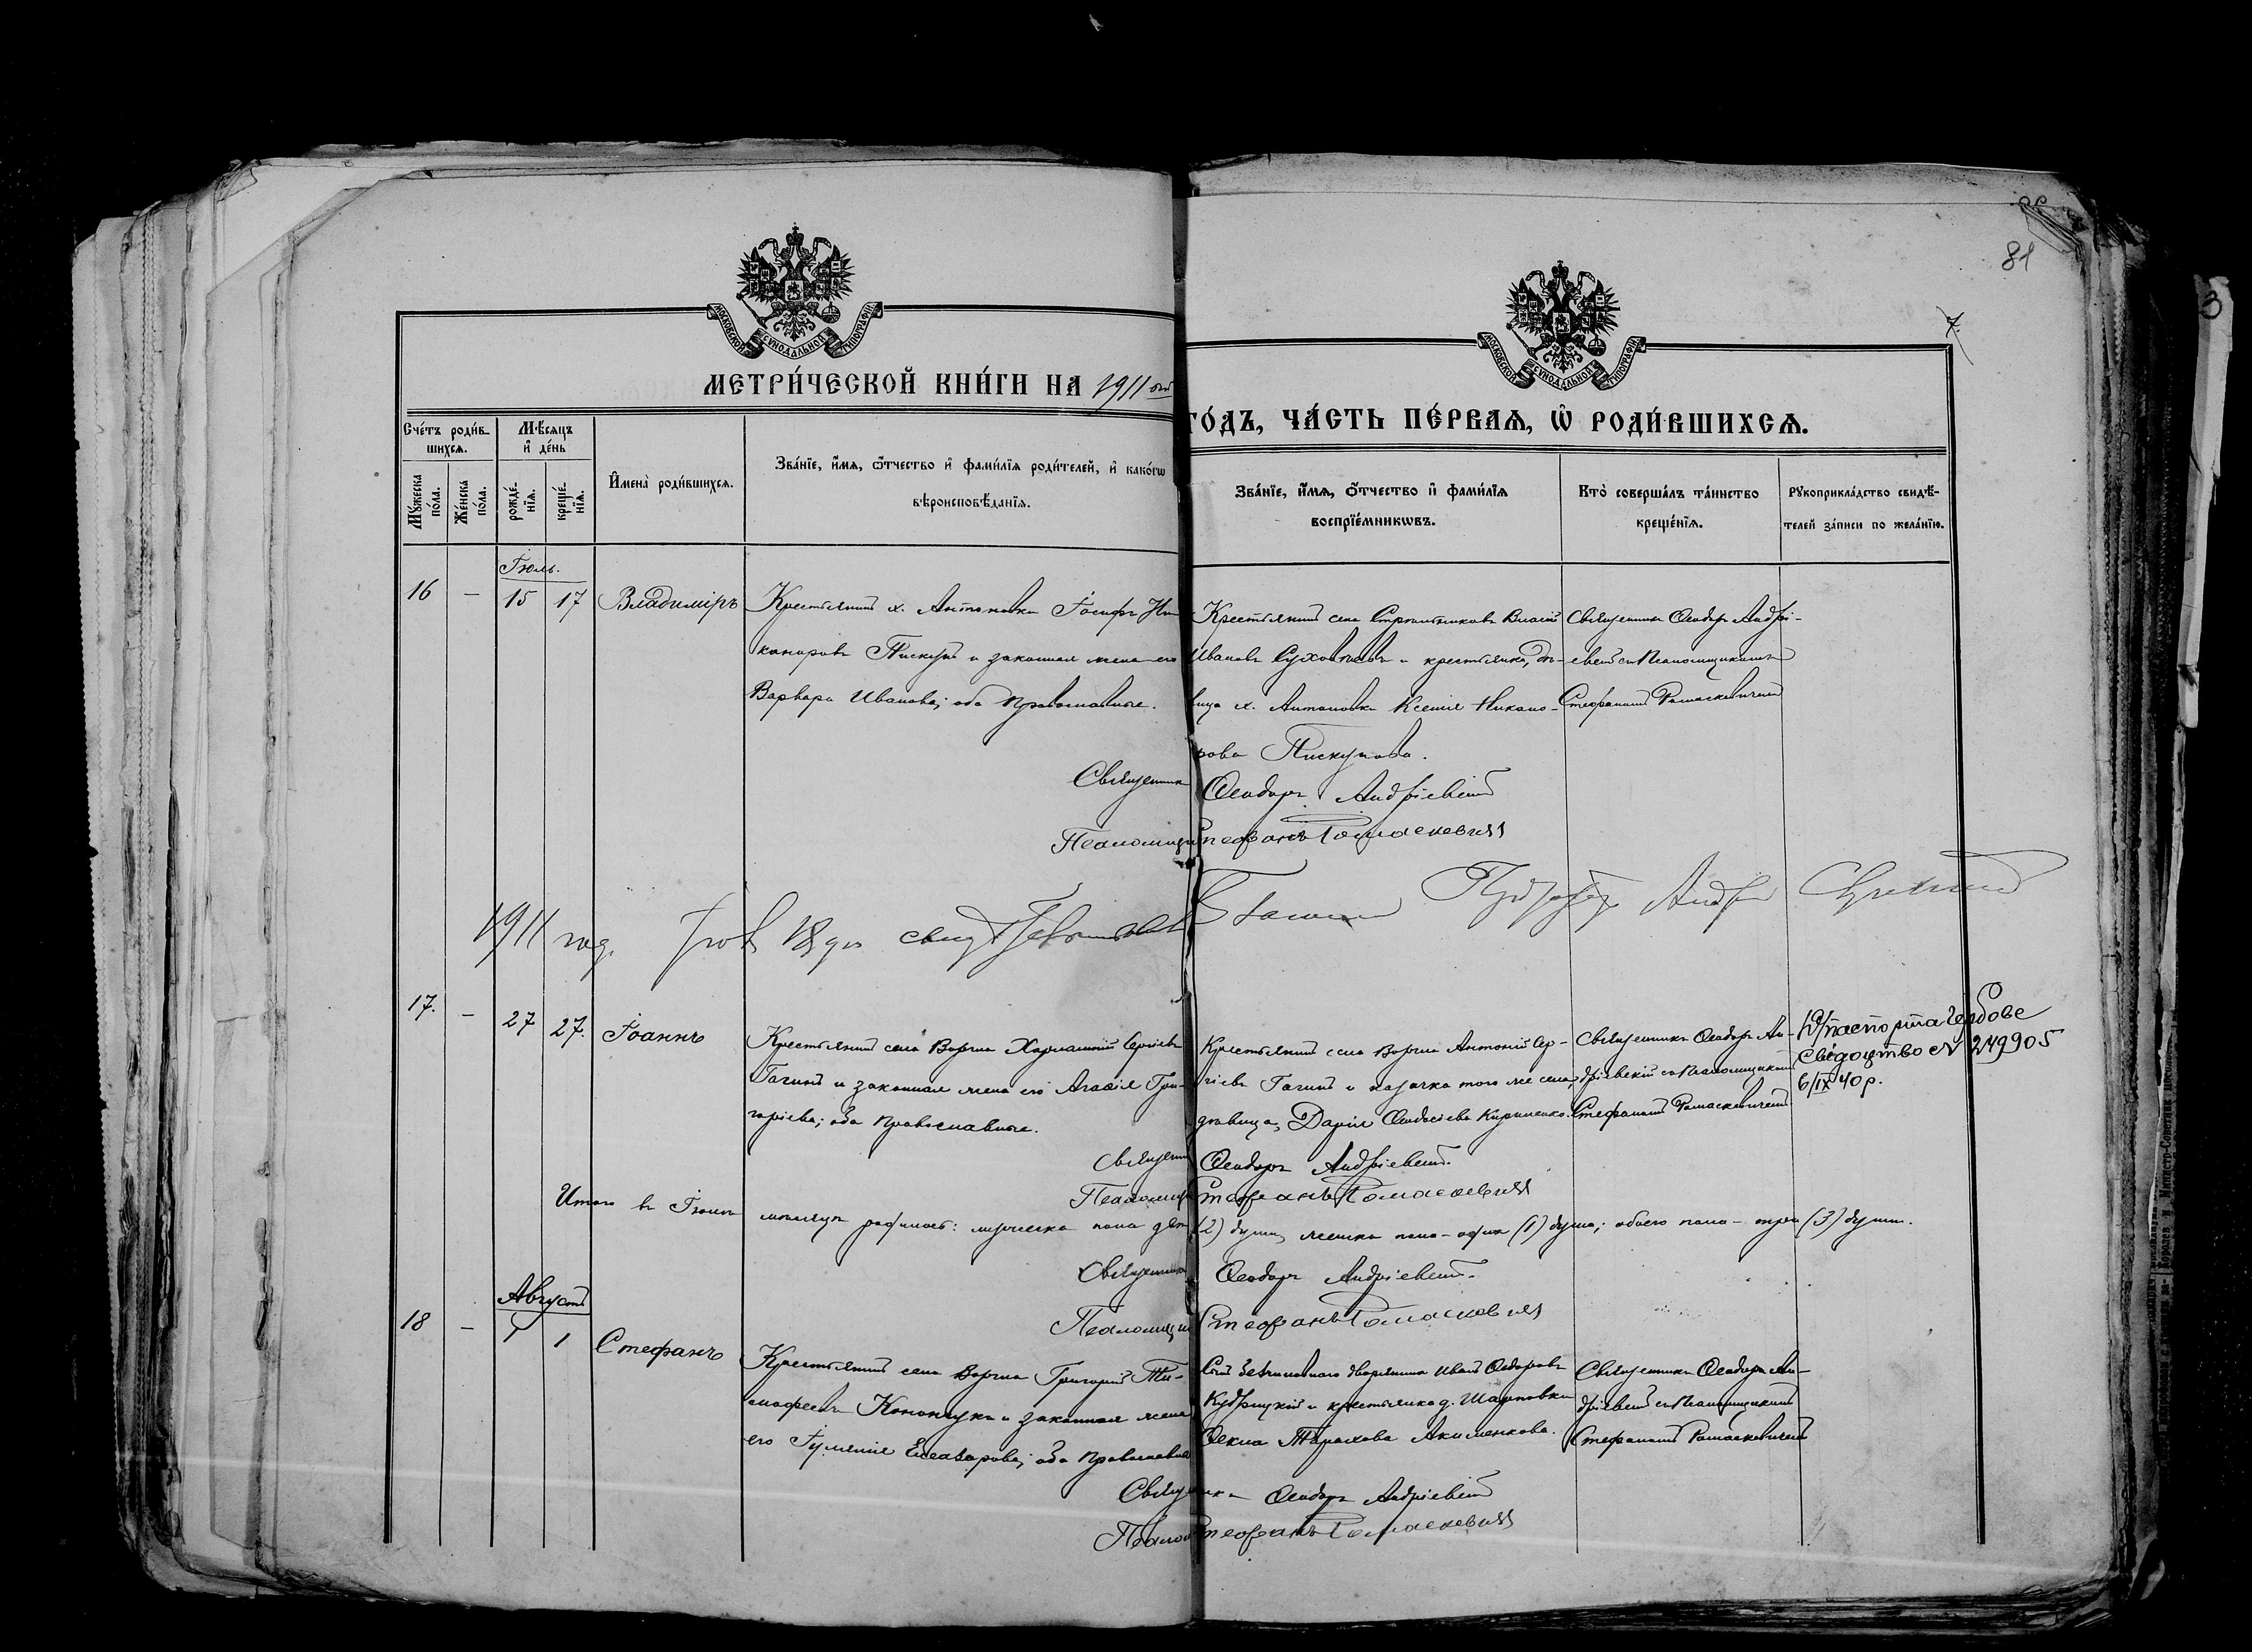 81
3
7.
МОСКОВСКОЙ СѴНОДАЛЬНОЙ ТИПОГРАФІИ
МОСКОВСКОЙ СѴНОДАЛЬНОЙ ТИПОГРАФІИ
МЕТРИ́ЧЕСКОЙ КНИ́ГИ НА 1911 ый
ГО́ДЪ, ЧА́СТЬ ПЕ́РВАѦ, Ѡ҆ РОДИ́ВШИХСѦ.
Сче́тъ роди́вшихсѧ.
Мꙋ́жеска по́ла.
Же́нска по́ла.
Мѣ́сѧцъ и҆ де́нь
рожде́нїѧ.
креще́нїѧ.
И҆мена̀ роди́вшихсѧ.
Зва́нїе, и҆́мѧ, ѻ҆́тчество и҆ фами́лїѧ роди́телей, и҆ како́гѡ
вѣроисповѣ́данїѧ.
Зва́нїе, и҆́мѧ, ѻ҆́тчество и҆ фами́лїѧ
воспрїе́мникѡвъ.
Кто̀ соверша́лъ та́инство
креще́нїѧ.
Рꙋкоприкла́дство свидѣ́-
телей за́писи по жела́нїю.
Іюль.
16 — 15 17 Владиміръ
Крестьянинъ х. Антоновки Іосифъ Ни-
каноровъ Пискунъ и законная жена его
Варвара Иванова; оба православные.
Крестьянинъ села Власій
Ивановъ и крестьянка, дѣ-
вица х. Антоновки Ксенія Никано-
рова Пискунова.
Священникъ Ѳеодоръ Андрі-
евскій съ Псаломщикомъ
Стефаномъ Ромаскевичемъ
Священникъ Ѳеодоръ Андріевскій
Псаломщикъ Стефанъ Ромаскевичъ
1911 год.
17. — 27 27. Іоаннъ
Крестьянинъ села Воргла Харлампій Сергіевъ
Гагинъ и законная жена его Агафія Гри-
горіева; оба православные.
Крестьянинъ села Воргла Антоній Сер-
гіевъ Гагинъ и казачка того же села,
дѣвица, Дарія Ѳеодосіева Кириченко.
Священникъ Ѳеодоръ Ан-
дріевскій съ Псаломщикомъ
Стефаномъ Ромаскевичемъ.
Д/паспорта гербове
свідоцтво N 249905
6/IX 40 р.
Священникъ Ѳеодоръ Андріевскій.
Псаломщикъ Стефанъ Ромаскевичъ
Итого въ Іюлѣ мѣсяцѣ родилось: мужеска пола двѣ (2) души, женска пола – одна (1) душа; обоего пола – три (3) души.
Священникъ Ѳеодоръ Андріевскій.
Псаломщикъ Стефанъ Ромаскевичъ
Августъ
18 — 1 1 Стефанъ
Крестьянинъ села Воргла Григорій Ти-
моѳеевъ и законная жена
его Гуменія Елеазарова; оба православные
Сынъ дворянина Иванъ Ѳеодоровъ
Кудрицкій и крестьянка д. Шарповки
Ѳекла Тарахова Акименкова.
Священникъ Ѳеодоръ Ан-
дріевскій съ Псаломщикомъ
Стефаномъ Ромаскевичемъ
Священникъ Ѳеодоръ Андріевскій
Псаломщикъ Стефанъ Ромаскевичъ